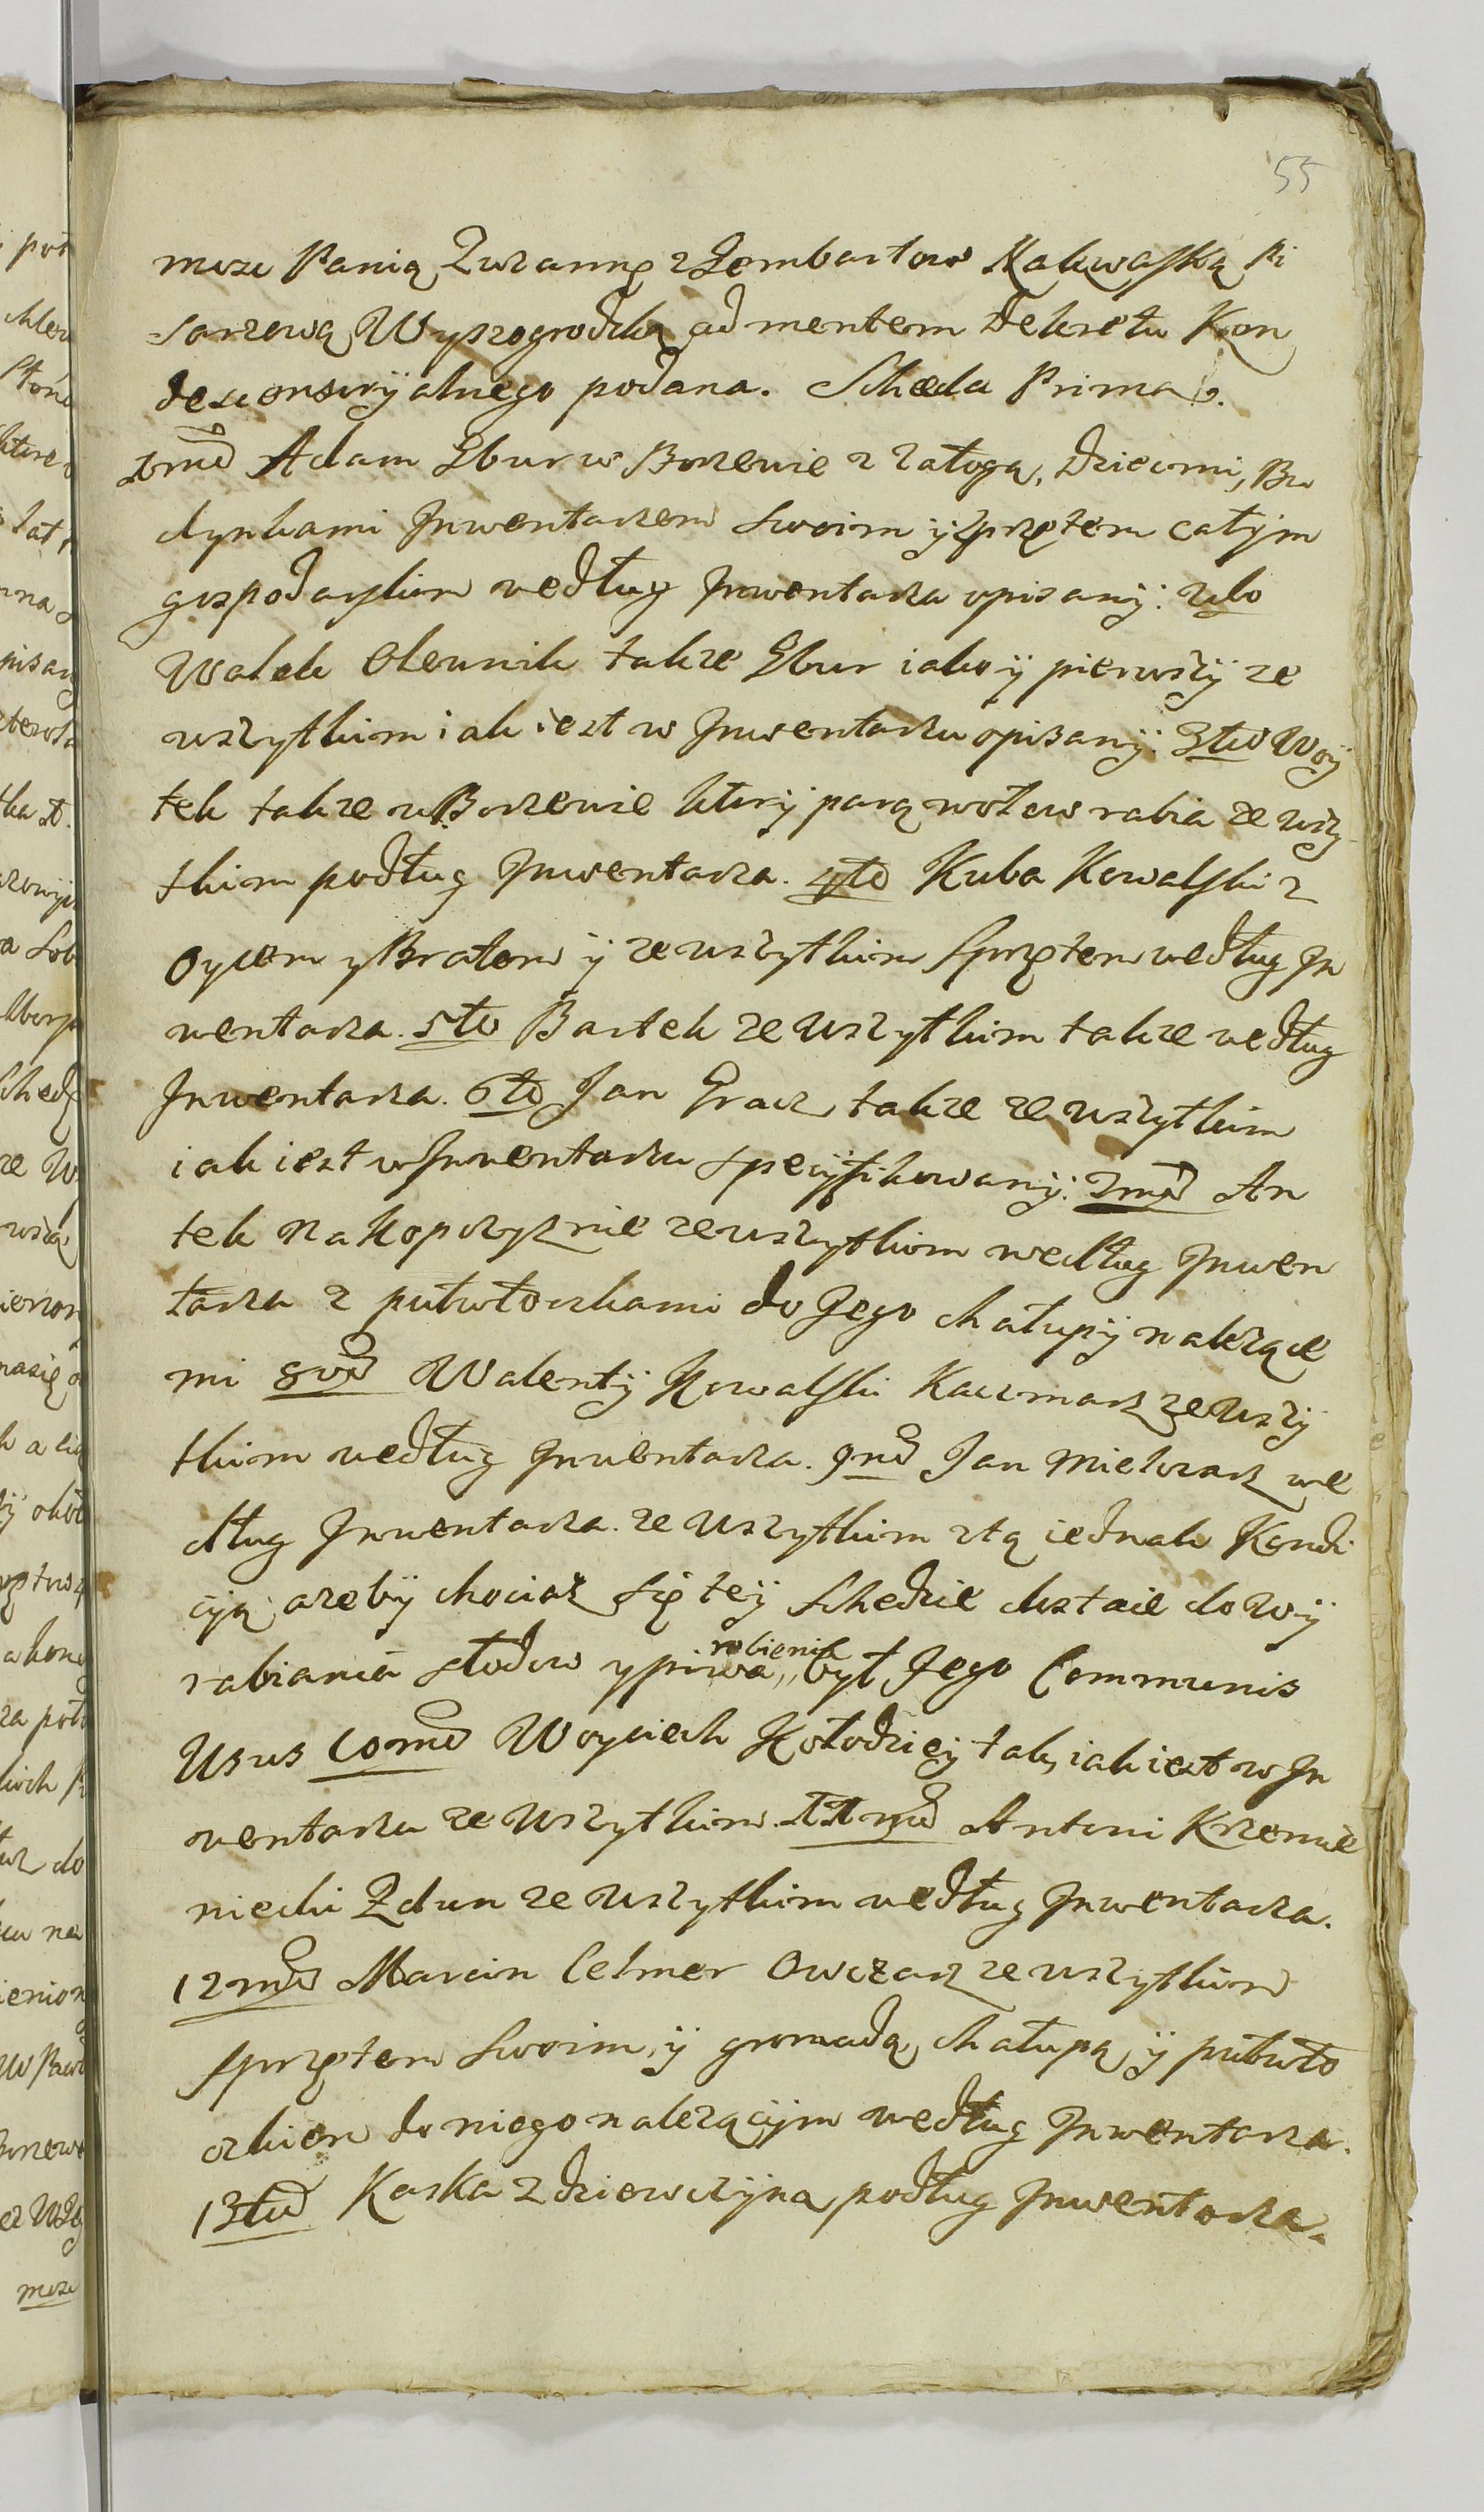 55
moze Panią Zuzannę z Lembartow Nakwaską Pi
sarzową Wyszogrodzką ad mentem Dekretu Kon
descensoryjalnego podana. Scheda Prima.
1mo Adam Gbur w Borzewie z załogą, dziecmi, Bu
dynkami Jnwentarzem swoim ÿ sprzętem całÿm
gospodarskim według Jnwentarza opisanÿ. 2do
Walek Olewnik także Gbur iako ÿ pierwszÿ ze
wszytkim iak iest w Jnwentarzu opisanÿ. 3tio Woÿ
tek także w Borzewie ktorÿ parą wołow rabia ze wszy
tkim podług Jnwentarza. 4to Kuba Kowalski z
Oycem y Bratem ÿ ze wszytkim sprzętem według Jn
wentarza. 5to Bartek ze wszytkim także według
Jnwentarza. 6to Jan Gracz, także ze wszytkim
iak iest w Jnwentarzu specÿfikowanÿ. 7mo An
tek na Kopczyznie ze wszytkim według Jnwen
tarza z pułwłoczkami do Jego chałupÿ należące
mi 8vo Walentÿ Kowalski Kaczmarz ze wszÿ
tkim według Jnwentarza. 9no Jan Mielcarz we
dług Jnwentarza. ze wszytkim z tą iednak Kondi
cÿą ażebÿ chociaż się teÿ Schedzie dostaie do wÿ
rabiania słodow y piwa robienia był Jego Communis
Usus 10mo Woyciech Kołodzieÿ tak, iak iest w Jn
wentarzu ze wszytkim. 11mo Antoni Krzemie
niecki Zdun ze wszytkim według Jnwentarza.
12mo Marcin Celmer Owczarz ze wszytkim
sprzętem swoim, ÿ gromadą, chałupą ÿ pułwło
czkiem do niego należącÿm według Jnwentarza.
13tio Kaska z dziewczÿną podług Jnwentarza.